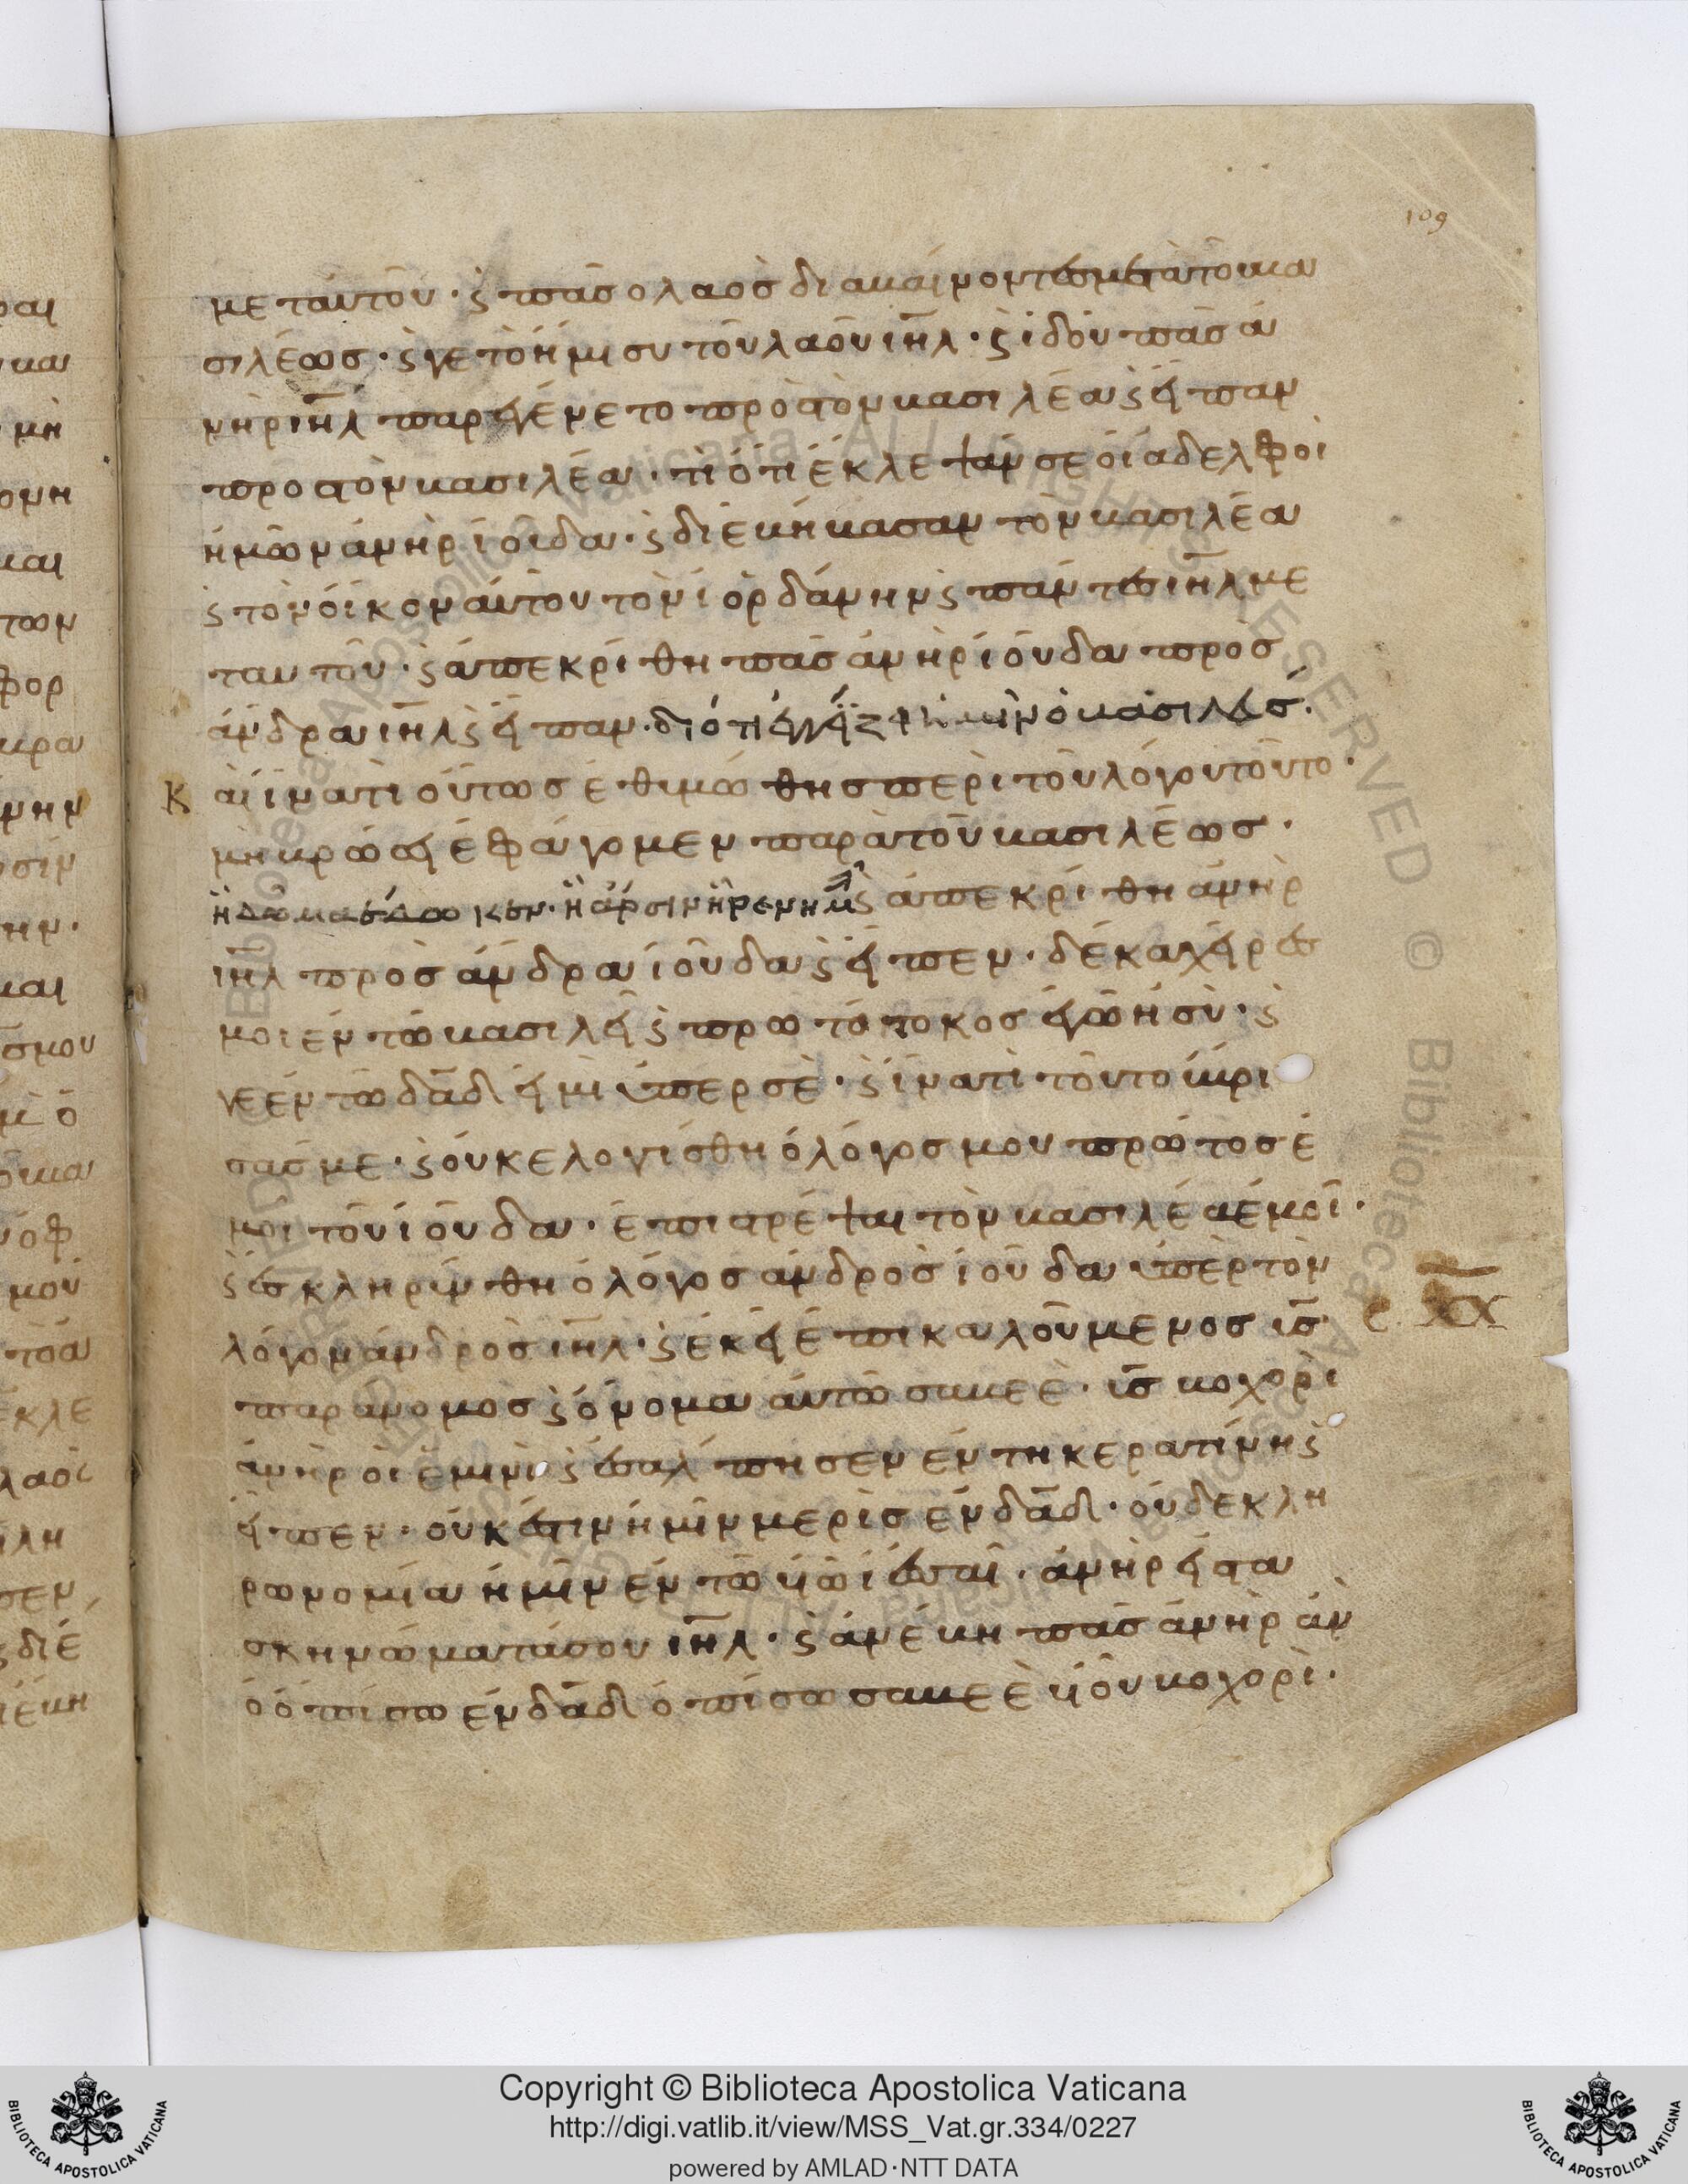 109
μετ αὐτοῦ· ϛ πᾶς ὁ λαὸς διαβαίνοντες μετὰ τοῦ βα
σιλέως· ϛ γε τὸ ἥμισυ τοῦ λαοῦ ιη̅λ· ϛ ἰδοὺ πᾶς ἀ
νὴρ ιη̅λ παρεγένετο πρὸς τὸν βασιλέα ϛ εἶπαν
πρὸς τὸν βασιλέα· τί ὅτι ἔκλεψάν σε οἱ ἀδελφοὶ
ἡμῶν ἀνὴρ ἰούδα· ϛ διεβήβασαν τὸν βασιλέα
ϛ τὸν οἶκον αὐτοῦ τὸν ἰορδάνην ϛ πάντες ιη̅λ με
τ αυτοῦ· ϛ ἀπεκρίθη πᾶς ἀνὴρ ἰούδα πρὸς
ἄνδρα ιη̅λ ϛ εἶπαν· διότι ἐγγίζει ἡμῖν ὁ βασιλεύς·
Κ αὶ ἵνα τί οὕτως ἐθυμώθης περὶ τοῦ λόγου τούτου·
μὴ βρώσει ἐφάγομεν παρὰ τοῦ βασιλέως·
ἢ δόμα ἔδωκεν· ἢ ἄρσιν ἦρεν ἡμῖν ϛ ἀπεκρίθη ἀνὴρ
ιη̅λ πρὸς ἄνδρα ἰούδα ϛ εἶπεν· δέκα χεῖρες
μοι ἐν τῷ βασιλεῖ ϛ πρωτότοκος ἐγὼ ἢ σύ· ϛ
γε ἐν τῷ δα̅δ εἰμὶ ὑπὲρ σέ· ϛ ἵνα τί τοῦτο ὕβρι
σάς με· ϛ οὐκ ἐλογίσθη ὁ λόγος μου πρῶτος ἐ
μοὶ τοῦ ἰούδα· ἐπιστρέψαι τὸν βασιλέα ἐμοί·
ϛ ἐσκληρύνθη ὁ λόγος ἀνδρὸς ἰούδα ὑπὲρ τὸν
λόγον ἀνδρὸς ιη̅λ· ϛ ἐκεῖ ἐπικαλούμενος υι̅ς
παράνομος ϛ ὄνομα αὐτῷ σαβεέ· υι̅ς βοχορὶ
ἀνὴρ ὁ ἰεμινὶ ϛ ἐσάλπισεν ἐν τῇ κερατίνῃ ϛ
εἶπεν· οὐκ ἔστιν ἡμῖν μερὶς ἐν δα̅δ· οὐδὲ κλη
ρονομία ἡμῖν ἐν τῷ υἱῷ ἰεσσαί· ἀνὴρ εἰς τὰ
σκηνώματά σου ιη̅λ· ϛ ἀνέβη πᾶς ἀνὴρ ἀπ
ὸ ὄπισω ἐν δα̅δ ὀπίσω σαβεὲ υἱοῦ βοχορί·
c. XX
Copyright © Biblioteca Apostolica Vaticana
http://digi.vatlib.it/view/MSS_Vat.gr.334/0227
powered by AMLAD·NTT DATA
BIBLIOTECA APOSTOLICA VATICANA
BIBLIOTECA APOSTOLICA VATICANA